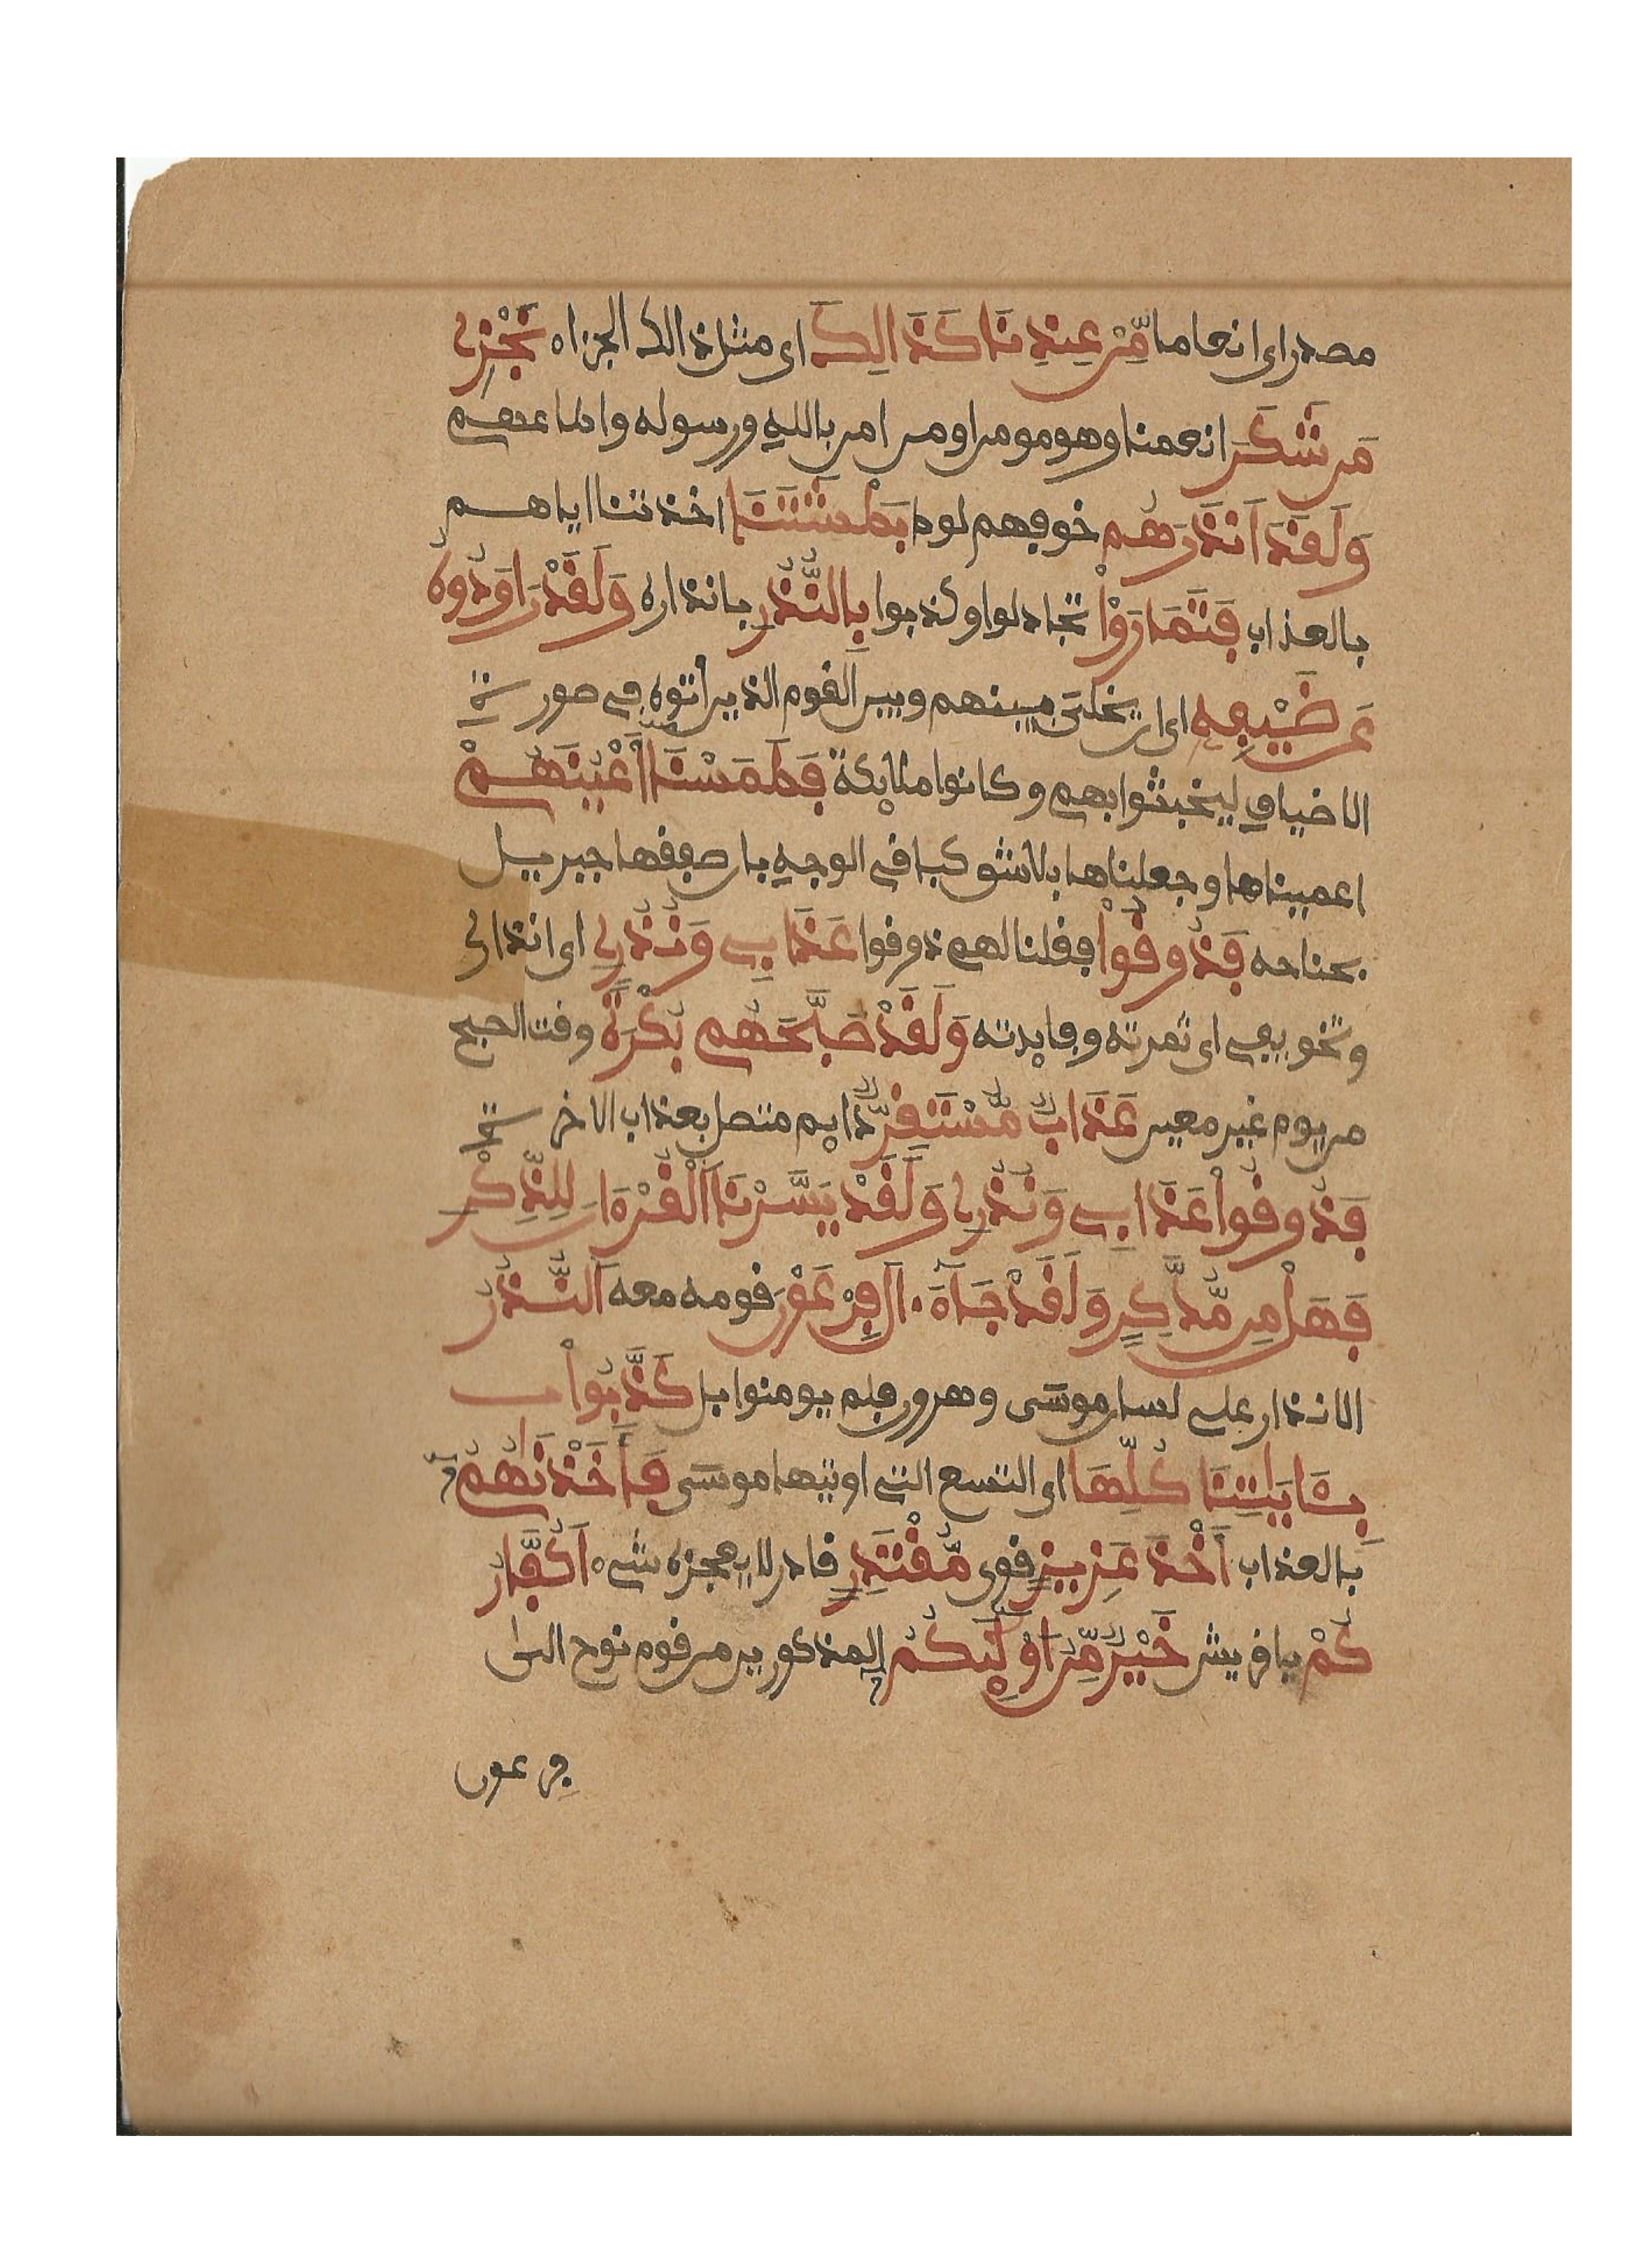 مصدر اى انعاما مِّنْ عِندِنَا كَذَالِكَ اى مثل ذالك الجزاء نَجْزِے
مَن شَكَرَ انعمنا وهو مومن او من امن بالله ورسوله واطاعهم
وَلَقَدَ اَنذَرَهُم خوفهم لوط بَطْشَتَنَا اخذتنا اياهم
بالعذاب فَتَمَارَوْاْ تجادلوا وكذبوا بِالنُّذُرِ بانذاره وَلَقَدْ رَاوَدُوهُ
عَن ضَيْفِهِ اى ان يخلى بينهم وبين القوم الذين اتوه فى صورة
الاضياف ليخبثوا بهم وكانوا ملايكة فَطَمَسْنَا أَعْيُنَهُمْ
اعميناها وجعلناها بلا شق كباقى الوجه بان صفقها جبريل
بجناحه فَذُوقُواْ فقلنا لهم ذوقوا عَذَابِے وَنُذُرِے اى انذارى
وتخويفى اى ثمرته وفايدته وَلَقَدْ صَبَّحَهُم بُكْرَةً وقت الصبح
من يوم غير معين عَذَابٌ مُّسْتَقِرٌّ دايم متصل بعذاب الاخرة
فَذُوقُواْ عَذَابِے وَنُذُرِے وَلَقَدْ يَسَّرْنَا اَلْقُرْءَانَ لِلذِّكْرِ
فَهَلْ مِن مُّدَّكِرٍ وَلَقَدْ جَآءَ الَ فِرْعَوْنَ قومه معه اَلنُّذُرُ
الانذار على لسان موسى وهرون فلم يومنوا بل كَذَّبُواْ
بِـَٔايَٰتِنَا كُلِّهَا اى التسع التى اوتيها موسى فَأَخَذْنَٰهُمُۥٓ
بالعذاب أَخْذَ عَزِيزٍ قوى مُّقْتَدِرٍ قادر لا يعجزه شىء اَكُفَّارُ
كُمْ يا قريش خَيْرٌ مِّنُ اوْلَٰٓئِكُمُۥ المذكورين من قوم نوح الى
فرعون